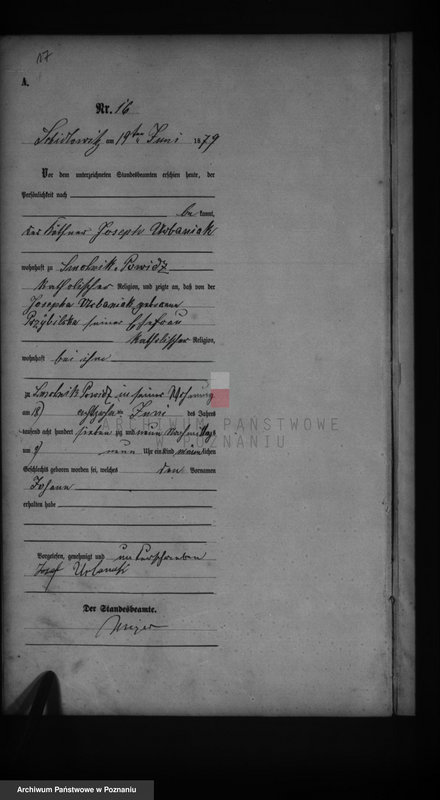 A.
Nr. 16
am 19ten Juni 1879
Vor dem unterzeichneten Standesbeamten erschien heute, der
Persönlichkeit nach
be kannt,
der Käthner Joseph Urbaniak
wohnhaft zu Smolnik-Powidz
katholischer Religion, und zeigte an, daß von der
Josepha Urbaniak geborene
Przybilska seiner Ehefrau
katholischer Religion,
wohnhaft bei ihm
zu Smolnik Powidz in seiner Wohnung
am 18) achtzehn Juni des Jahres
tausend acht hundert sieben zig und neun Nachmittags
um 9) neun Uhr ein Kind männlichen
Geschlechts geboren worden sei, welches den Vornamen
Johann
erhalten habe
Vorgelesen, genehmigt und unterschrieben
Josef
Der Standesbeamte.
Meyer
ARCHIWUM PAŃSTWOWE
W POZNANIU
Archiwum Państwowe w Poznaniu